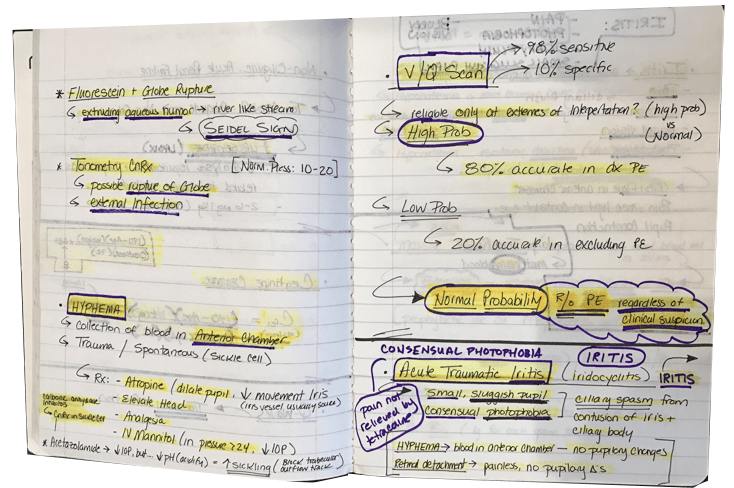 * Fluorescein + Globe Rupture
↳ extruding aqueous humor → river like stream
↳ SEIDEL SIGN
* Tonometry CnRx [Norm. Press: 10-20]
↳ possible rupture of Globe
↳ external Infection
• HYPHEMA
↳ collection of blood in Anterior Chamber
↳ Trauma / Spontaneous (Sickle cell)
↳ Rx: - Atropine (dilate pupil, ↓ movement Iris
(iris vessel usually source)
- Elevate Head
- Analgesia
- IV Mannitol (in pressure ≥24, ↓ IOP)
carbonic anhydrase
inhibitors
↳ CnRx in Sickle Cell
* Acetazolamide → ↓ IOP, but... ↓ pH (acidify) = ↑ Sickling (Block trabecular
outflow track)
• V/Q Scan → 98% sensitive
→ 10% specific
↳ reliable only at extemes of Interpertation? (high prob)
vs
(Normal)
↳ High Prob
↳ 80% accurate in dx PE
↳ Low Prob
↳ 20% accurate in excluding PE
→ Normal Probability R/o PE regardless of
clinical suspicion
CONSENSUAL PHOTOPHOBIA
IRITIS
• Acute Traumatic Iritis (iridocyclitis) IRITIS
↳ Small, sluggish pupil
consensual photophobia
ciliary spasm from
contusion of Iris +
ciliary body
pain not
relieved by
tetracaine
HYPHEMA → blood in anterior chamber — no pupilary changes
Retinal detachment → painless, no pupilary Δs